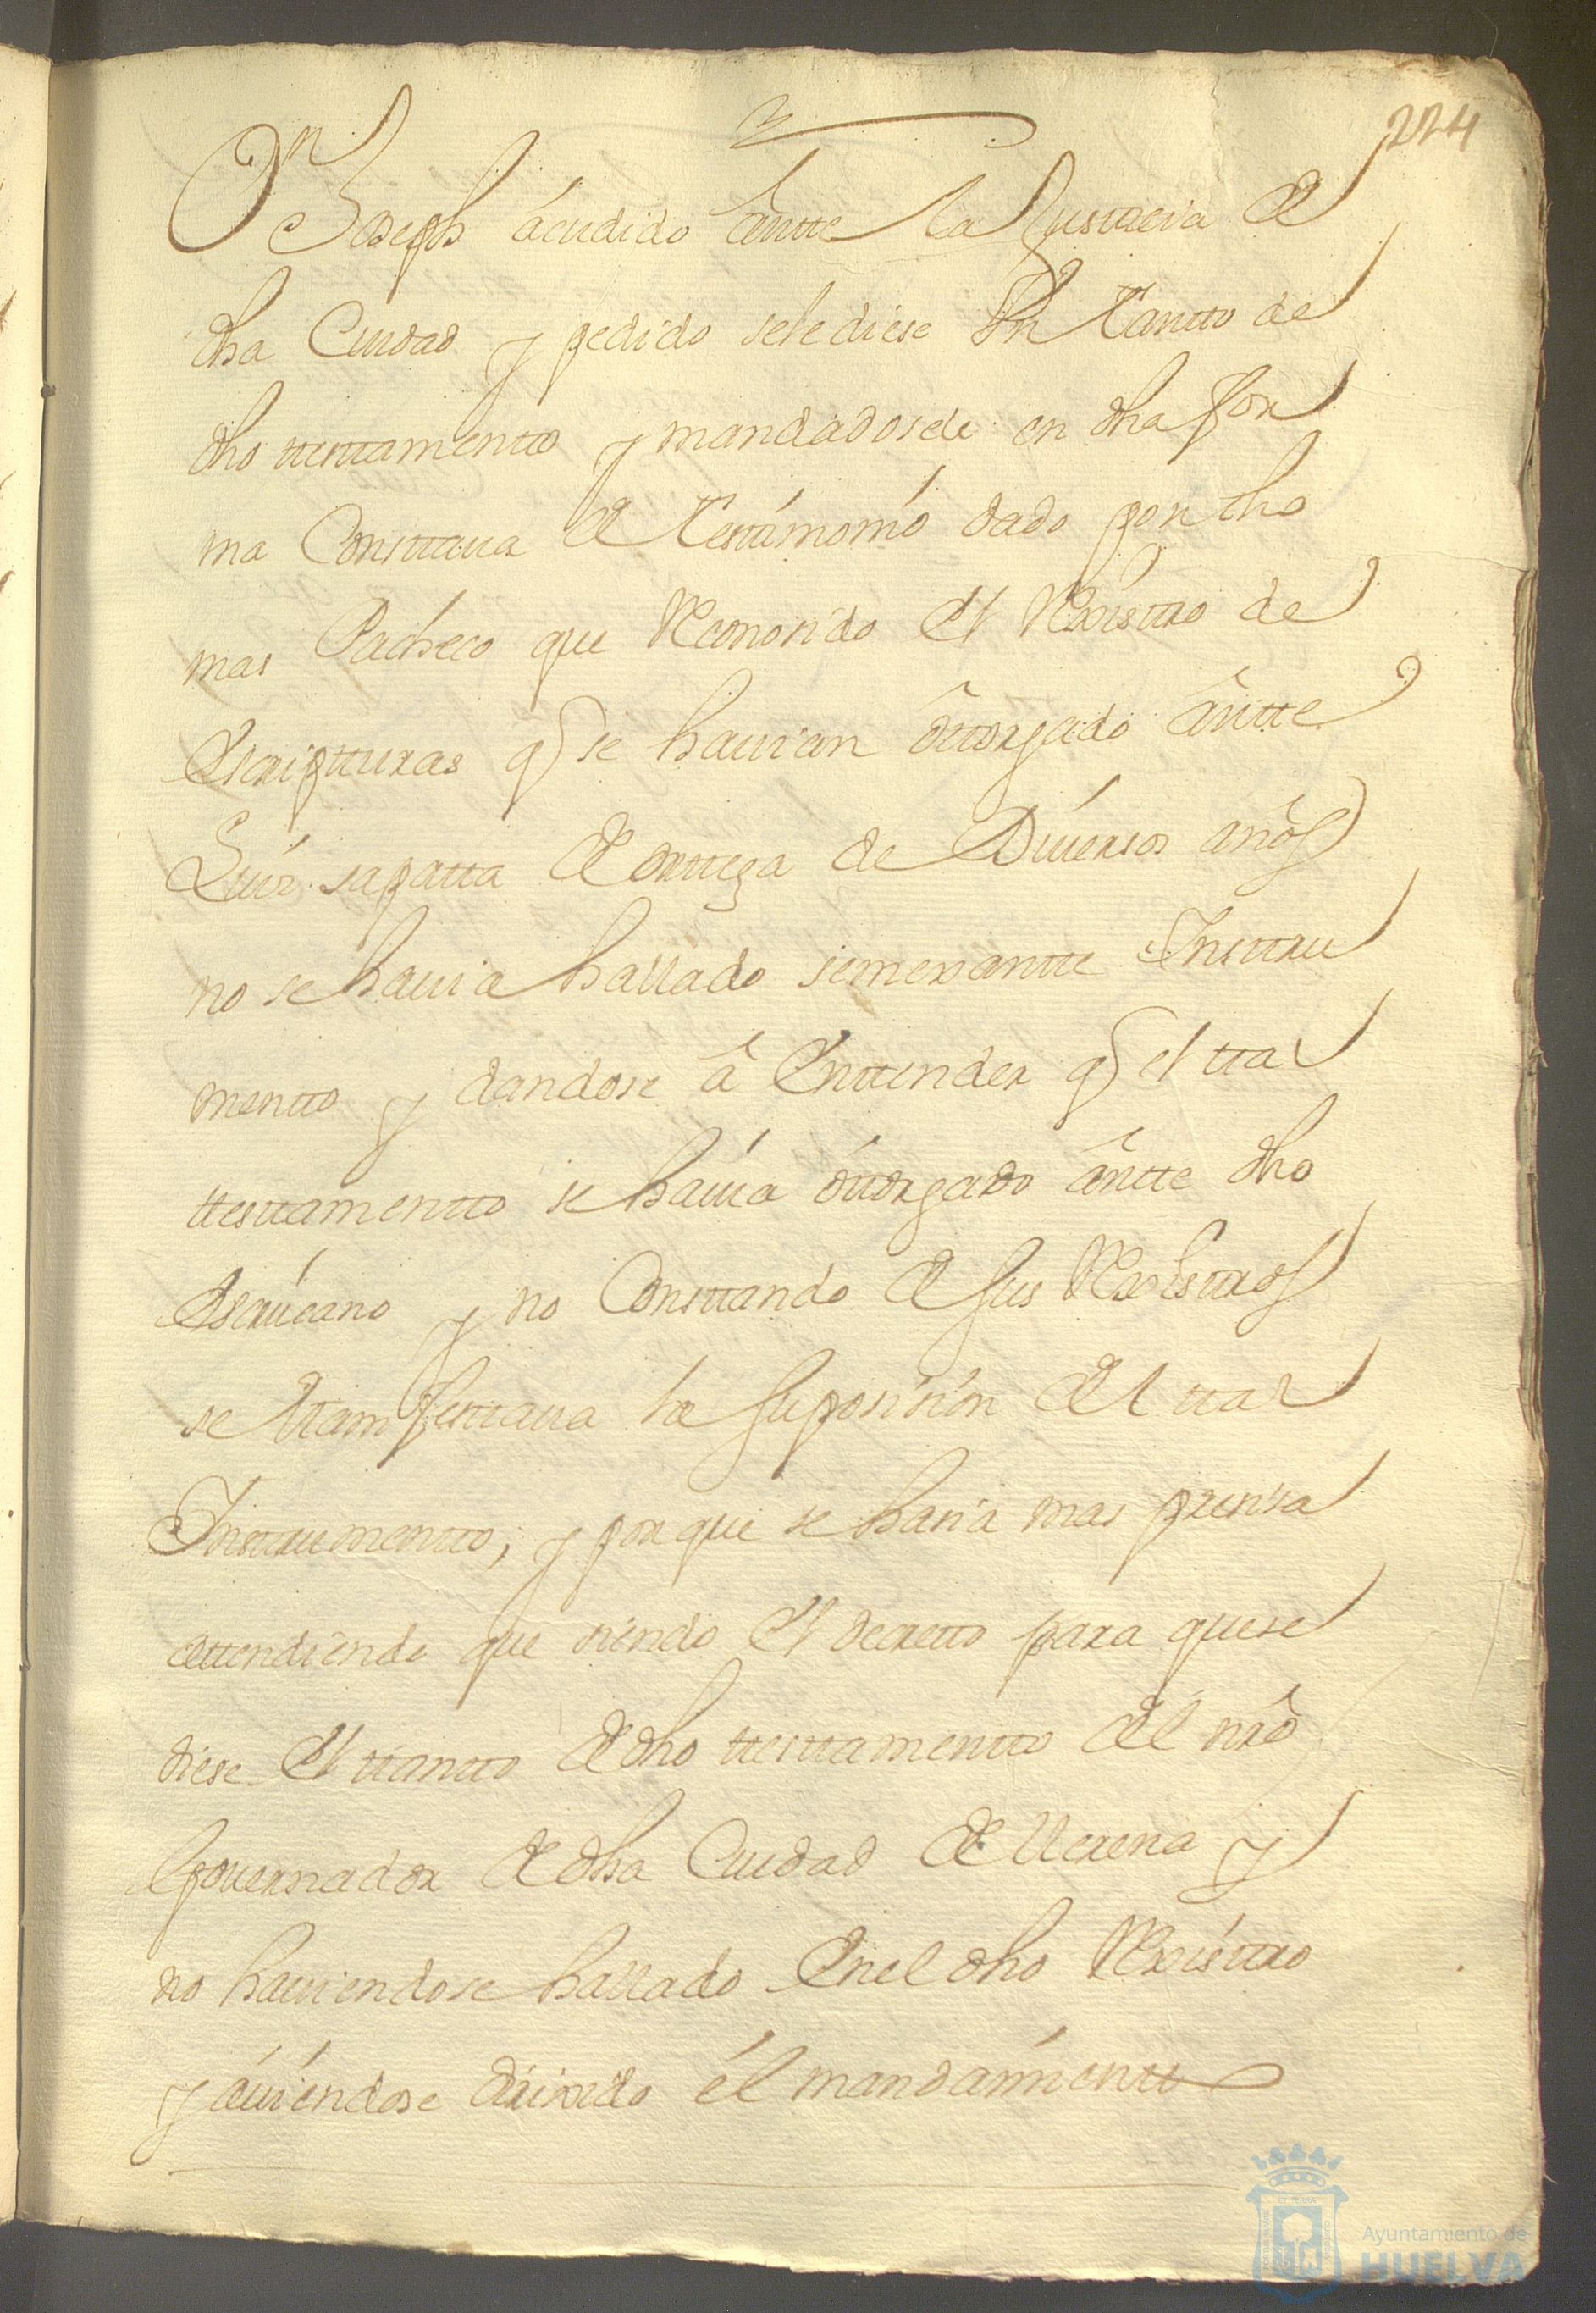 224
Dn Joseph acudido antte la Justicia de
dha Ciudad y pedido se le diese Un tantto de
dho testtamentto y mandadosele en dha for
ma Consttaua de testimonio dado por tho
mas Pacheco que Reconosido el Rexisttro de
Escriptturas q se hauian ottorgado antte
Luis sapatta de orttega de Diuersos años
no se hauia hallado semexantte Insttru
mentto y dandose a Enttender q el ttal
ttesttamentto se hauia ottorgado antte dho
Escriuano y no Consttando de sus Rexisttros
se Manifesttaua la suposision del ttal
Insttrumentto, y porque se haria mas prensa
attendiendo que siendo el decretto para que se
diese el ttantto de dho ttesttamentto del nro
Gouernador de dha Ciudad de llerena y
no hauiendose hallado En el dho Rexisttro
y auiendose dirixido el mandamientto
Ayuntamiento de
HUELVA